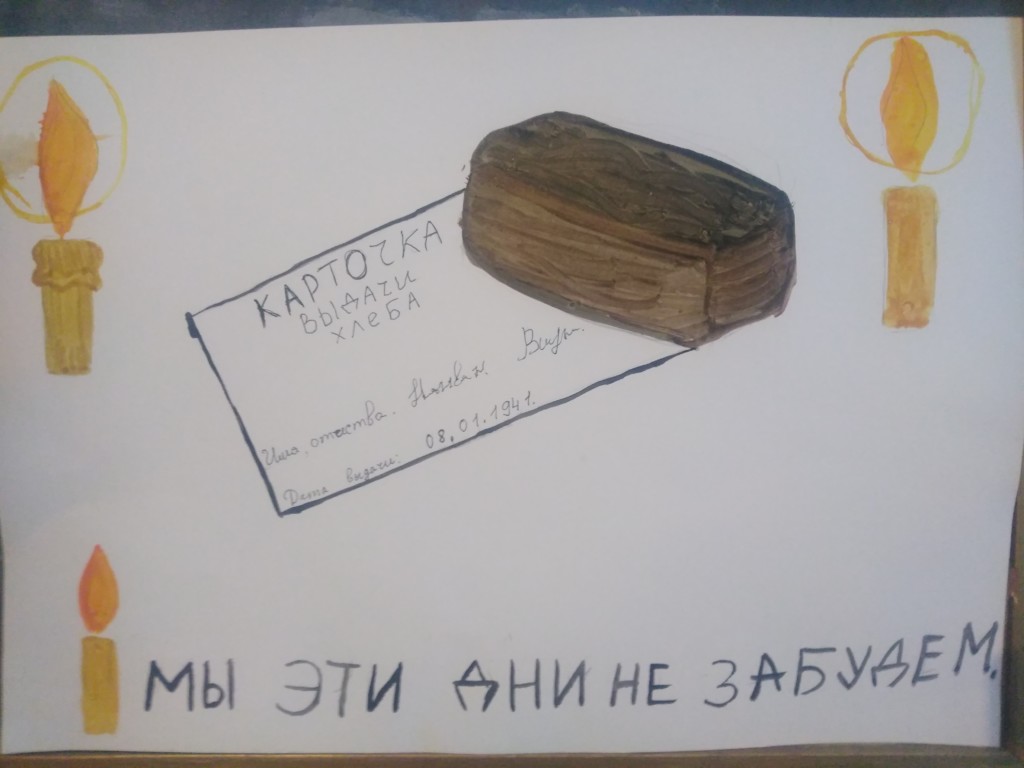 КАРТОЧКА
ВЫДАЧИ
ХЛЕБА
Имя, отчество.
Дата выдачи: 08.01.1941.
МЫ ЭТИ ДНИ НЕ ЗАБУДЕМ.